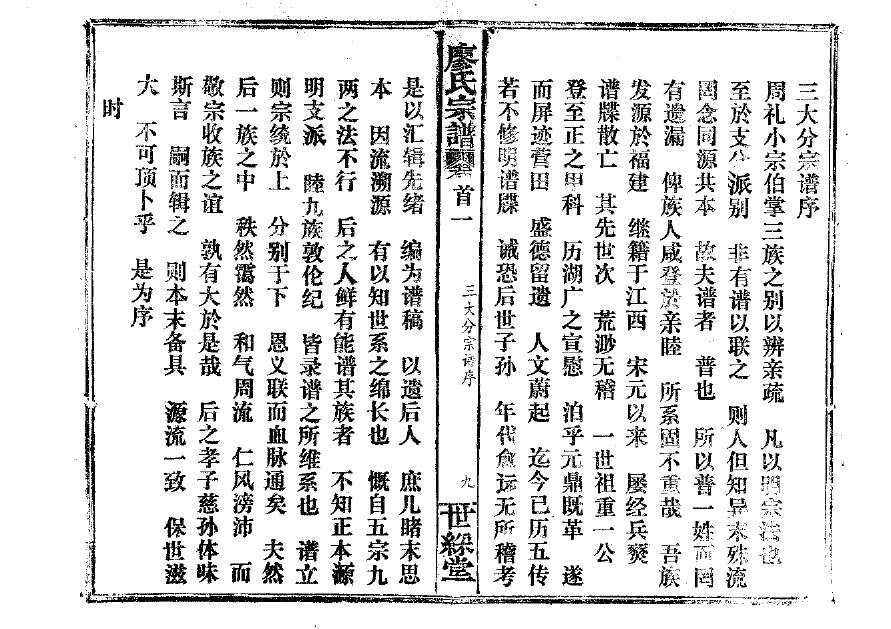 三大分宗谱序
周礼小宗伯掌三族之别以辨亲疏　凡以明宗法也
至於支分派别　非有谱以联之　则人但知异末殊流
罔念同源共本　故夫谱者　普也　所以普一姓而罔
有遗漏　俾族人咸登於亲睦　所系固不重哉　吾族
发源於福建　继籍于江西　宋元以来　屡经兵燹
谱牒散亡　其先世次　荒渺无稽　一世祖重一公
登至正之甲科　历湖广之宣慰　洎乎元鼎既革　遂
而屏迹营田　盛德留遗　人文蔚起　迄今已历五传
若不修明谱牒　诚恐后世子孙　年代愈远无所稽考
廖氏宗譜 首一 三大分宗谱序 九 世綵堂
是以汇辑先绪　编为谱稿　以遗后人　庶几睹末思
本　因流溯源　有以知世系之绵长也　慨自五宗九
两之法不行　后之人鲜有能谱其族者　不知正本源
明支派　睦九族敦伦纪　皆录谱之所维系也　谱立
则宗统於上　分别于下　恩义联而血脉通矣　夫然
后一族之中　秩然霭然　和气周流　仁风滂沛　而
敬宗收族之谊　孰有大於是哉　后之孝子慈孙体味
斯言　嗣而辑之　则本末备具　源流一致　保世滋
大　不可顶卜乎　是为序
时